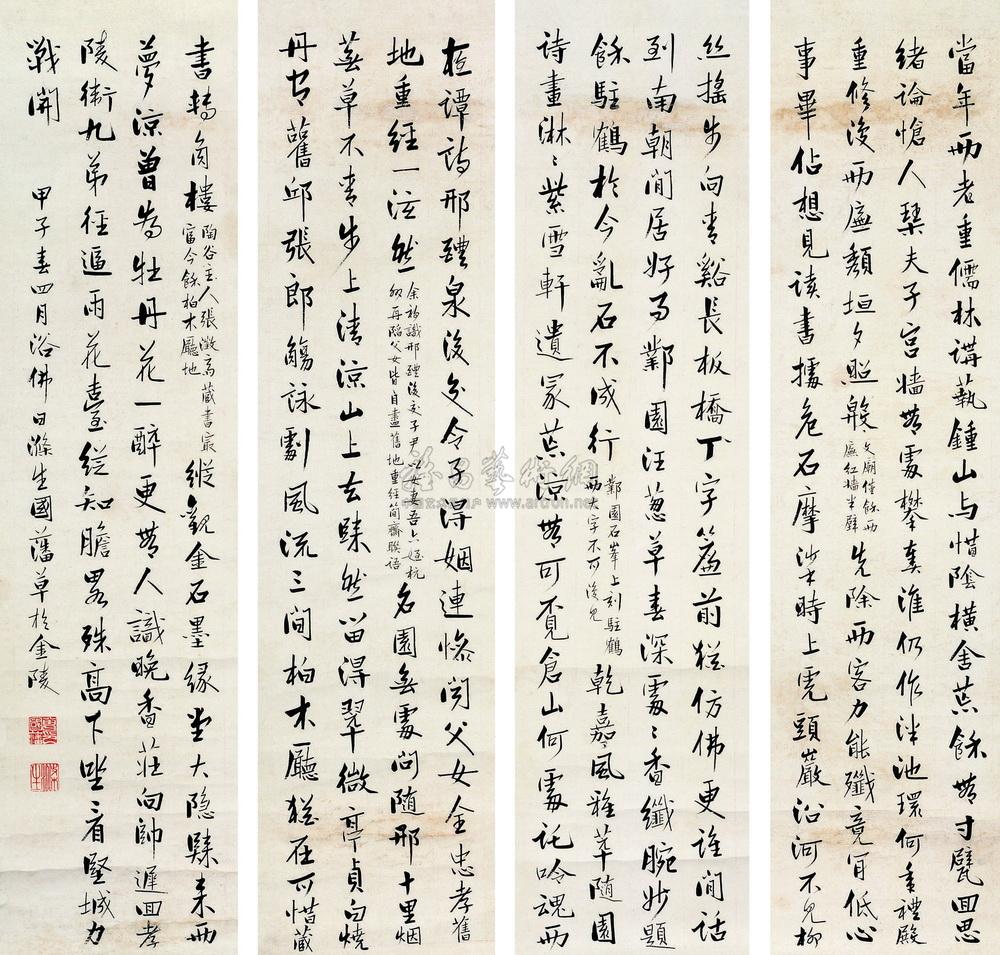 當年兩老重儒林講藝鍾山与惜陰橫舍蕪餘無寸甓回思
緒論愴人琴夫子宮墻無處攀秦淮仍作泮池環何年禮殿
重修復兩廡頹垣夕照殷文廟僅餘兩廡紅墻半壁先除兩客力能殲竟肎低心
事畢佔想見讀書據危石摩沙時上虎頭巖沿河不見柳
絲搖步向青谿長板橋丁字簾前猶仿佛更誰閒話
到南朝閒居好事鄴園汪蔥草春深處處香纖腕妙題
餘駐鶴於今亂石不成行鄴園石峯上刻駐鶴兩大字不可復見乾嘉風雅萃隨園
詩畫淋淋紫雪軒遺冢蕪涼無可覓倉山何處託吟魂兩
桓譚詩邢醴泉後交令子得姻連慘聞父女全忠孝舊
地重經一泫然余初識邢醴後交子尹以女妻吾六姪杭州再陷父女皆自盡舊地重經簡齋聯語名園無處問隨邢十里烟
蕪草不青步上清涼山上去縣然留得翠微亭貞白燒
丹有舊邱張郎觴詠劇風流三間柏木廳猶在可惜藏
書轉角樓陶谷主人張澂齋藏書最富今餘柏木廳地縱觀金石墨緣堂大隱縣未兩
夢涼曾為牡丹花一醉更無人識晚香莊向帥遲回孝
陵衛九弟徑逼雨花臺從知膽略殊高下坐看堅城力
戰開
甲子春四月浴佛日滌生國藩草於金陵